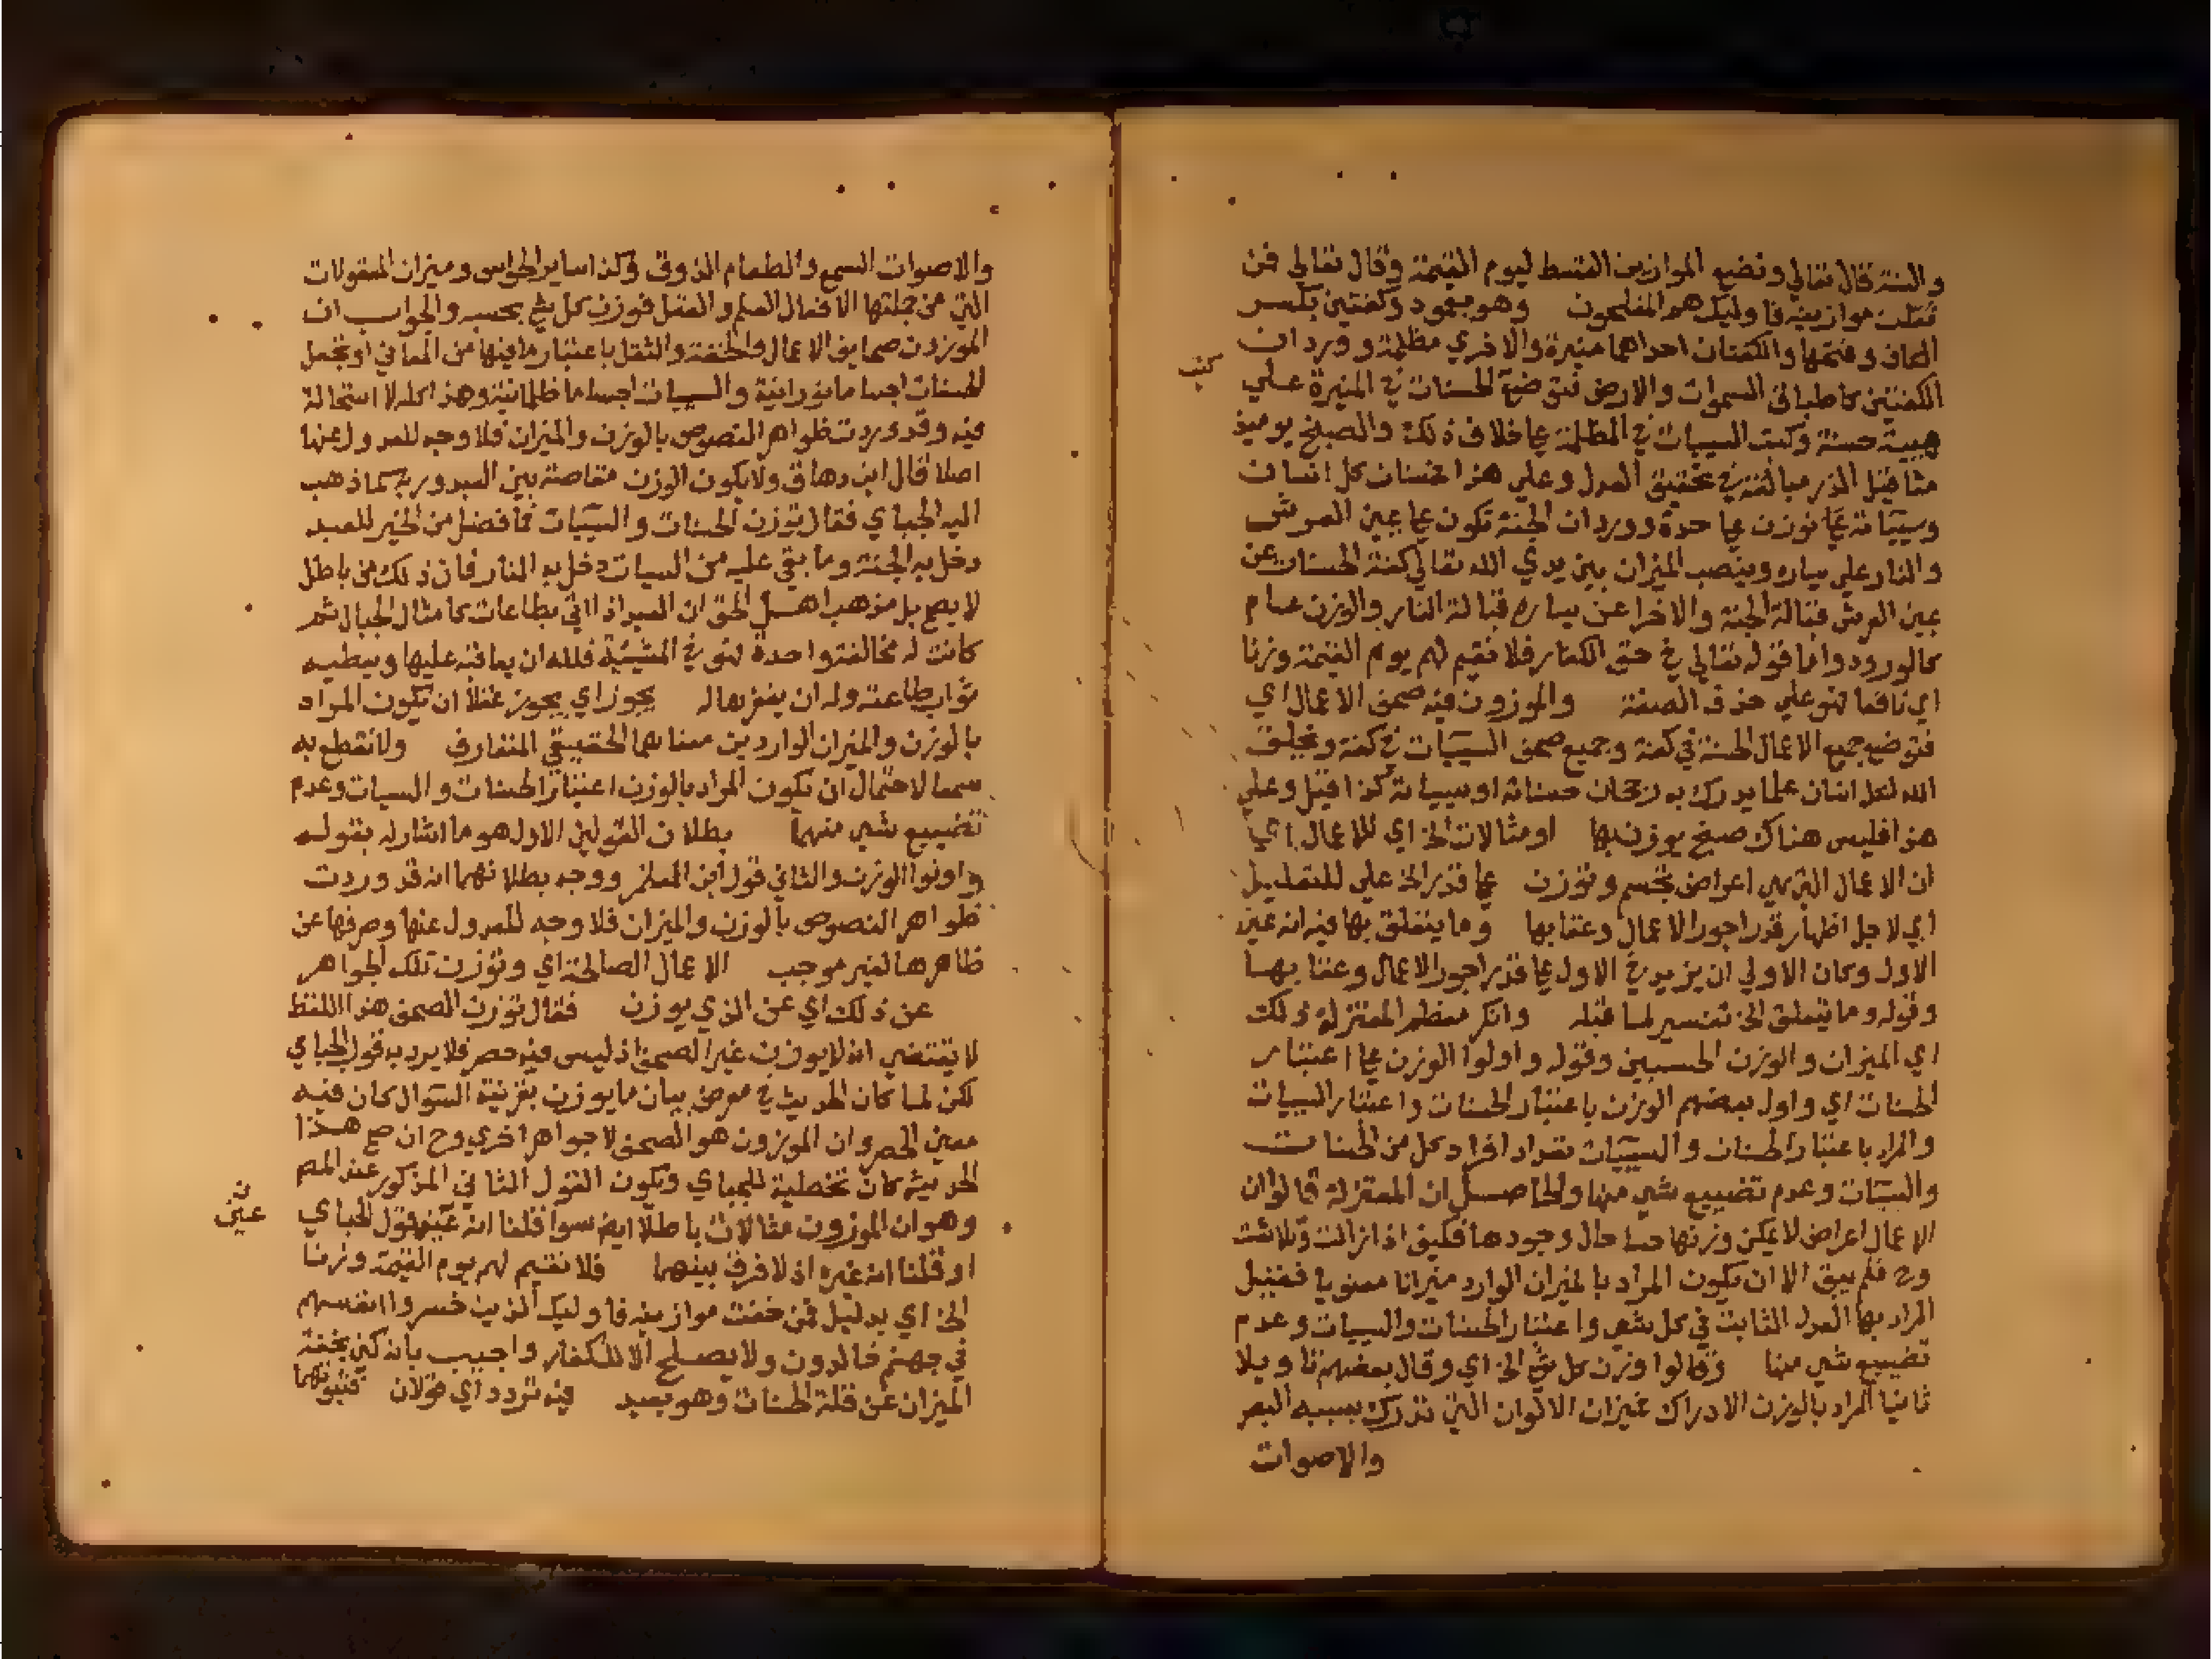 والسنة قال تعالي ونضع الموازين القسط ليوم القيمة وقال تعالي فمن
ثقلت موازينه فاوليك هم المفلحون وهو بعمود وكفتين بكسر
الكاف وفتحها والكفتان احداهما منيرة والاخري مظلمة وورد ان
الكفتين كاطباق السموات والارض فتوضع الحسنات في المنيرة علي
كتب
هيية حسنة وكتب السييات في المظلمة علي خلاف ذلك والصبخ يوميذ
مثاقيل الذر مبالغة في تحقيق العدل وعلي هذا فحسنات كل انسان
وسيياته توزن علي حدة وورد ان الجنة تكون علي يمين العرش
والنار علي يساره وينصب الميزان بين يدي الله تعالي كفة الحسنات عن
يمين العرش قبالة الجنة والاخرا عن يساره قبالة النار والوزن عام
كالورود واما قوله تعالي في حق الكفار فلا نقيم لهم يوم القيمة وزنا
اي نافعا فهو علي حذف الصفة والموزون فيه صحف الاعمال اي
فتوضع جميع الاعمال الحسنة في كفة وجميع صحف السييات في كفة ويخلق
الله لكل انسان علما يدرك به رجحان حسناته او سيياته كذا قيل وعلي
هذا فليس هناك صبخ يوزن بها او مثالات الخ اي للاعمال اي
ان الاعمال التي هي اعراض تجسم وتوزن علي قدر الخ علي للتعليل
اي لاجل اظهار قدر اجور الاعمال وعقابها وما يتعلق بها فيه انه عين
الاول وكان الاولي ان يزيد في الاول علي قدر اجور الاعمال وعقابها
وقوله وما يتعلق الخ تفسير لما قبله وانكر معظم المعتزلة ذلك
اي الميزان والوزن الحسيين وقوله واولوا الوزن علي اعتبار
الحسنات اي واول بعضهم الوزن باعتبار الحسنات واعتبار السييات
والمراد باعتبار الحسنات والسييات تعداد افراد كل من الحسنات
والسيات وعدم تضييع شي منها والحاصل ان المعتزلة قالوا ان
الاعمال اعراض لا يمكن وزنها حسا حال وجودها فكيف اذا زالت وتلاشت
وح فلم يبق الا ان يكون المراد بالميزان الوارد ميزانا معنويا فقيل
المراد بها العدل الثابت في كل شي واعتبار الحسنات والسييات وعدم
تضييع شي منها وقالوا وزن كل شي الخ اي وقال بعضهم تاويلا
ثانيا المراد بالوزن الادراك فميزان الالوان التي تدرك بسببه البصر
والاصوات
والاصوات السمع والطعام الذوق وكذا ساير الحواس وميزان المعقولات
التي من جملتها الافعال العلم والعقل فوزن كل شي بحسبه والجواب ان
الموزون صحايف الاعمال والخفة والثقل باعتبار ما فيها من المعاني او تجعل
الحسنات اجساما نورانية والسييات اجساما ظلمانية وهذا كله لا استحالة
فيه وقد وردت ظواهر النصوص بالوزن والميزان فلا وجه للعدول عنها
اصلا قال ابن دهاق ولا يكون الوزن مقاصة بين العبد وربه كما ذهب
اليه الجباي فقال توزن الحسنات والسييات فما فضل من الخير للعبد
دخل به الجنة وما بقي عليه من السيات دخل به النار فان ذلك من باطل
لا يصح بل مذهب اهل الحق ان العبد اذا اتي بطاعات كامثال الجبال ثم
كانت له مخالفة واحدة فهو في المشيية فلله ان يعاقبه عليها ويعطيه
ثواب طاعته وله ان يغفرها له يجوز اي يجوز عقلا ان يكون المراد
بالوزن والميزان الواردين معناهما الحقيقي المتعارف ولا نقطع به
سمعا لاحتمال ان يكون المراد بالوزن اعتبار الحسنات والسيات وعدم
تضييع شي منهما بطلان القولين الاول هو ما اشار له بقوله
واولوا الوزن والثاني قول ابن المعلم ووجه بطلانهما انه قد وردت
ظواهر النصوص بالوزن والميزان فلا وجه للعدول عنها وصرفها عن
ظاهرها لغير موجب الاعمال الصالحة اي وتوزن تلك الجواهر
عن ذلك اي عن الذي يوزن فقال توزن الصحف هذا اللفظ
لا يقتضي انه لا يوزن غير الصحف اذ ليس فيه حصر فلا يرد به قول الجباي
لكن لما كان الحديث في معرض بيان ما يوزن بقرينة السوال كان فيه
معني الحصر وان الموزون هو الصحف لا جواهر اخري وح ان صح هذا
الحديث كان تخطية للجباي ويكون القول الثاني المذكور عند المصـ
وهو ان الموزون مثالات باطلا ايضا سوا قلنا انه عين قول الجباي
ن عين
او قلنا انه غيره اذ لا فرق بينهما فلا نقيم لهم يوم القيمة وزنا
الخ اي بدليل فمن خفت موازينه فاوليك الذين خسروا انفسهم
في جهنم خالدون ولا يصلح الا للكفار واجيب بانه كني بخفة
الميزان عن قلة الحسنات وهو بعيد فيه تردد اي قولان